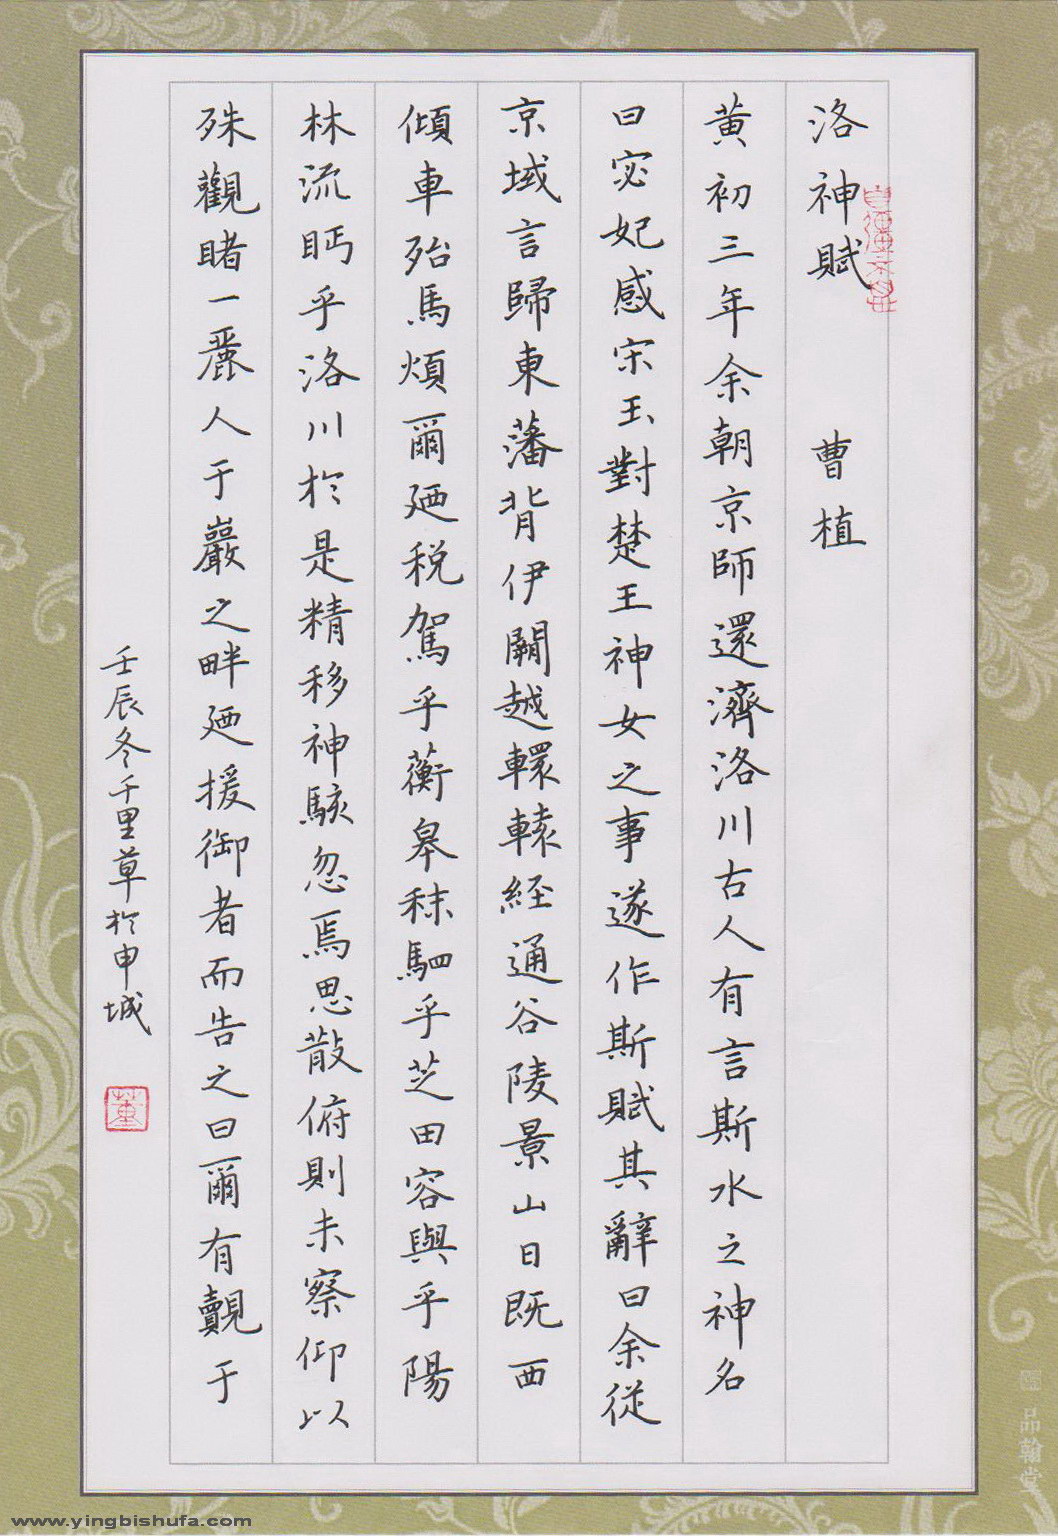 洛神賦 曹植
黄初三年余朝京師還濟洛川古人有言斯水之神名
曰宓妃感宋玉對楚王神女之事遂作斯賦其辭曰余従
京域言歸東藩背伊闕越轘轅経通谷陵景山日既西
傾車殆馬煩爾廼税駕乎蘅皋秣駟乎芝田容與乎陽
林流眄乎洛川於是精移神駭忽焉思散俯則未察仰以
殊觀睹一麗人于巖之畔廼援御者而告之曰爾有覿于
壬辰冬千里草於申城
董
品翰堂
www.yingbishufa.com